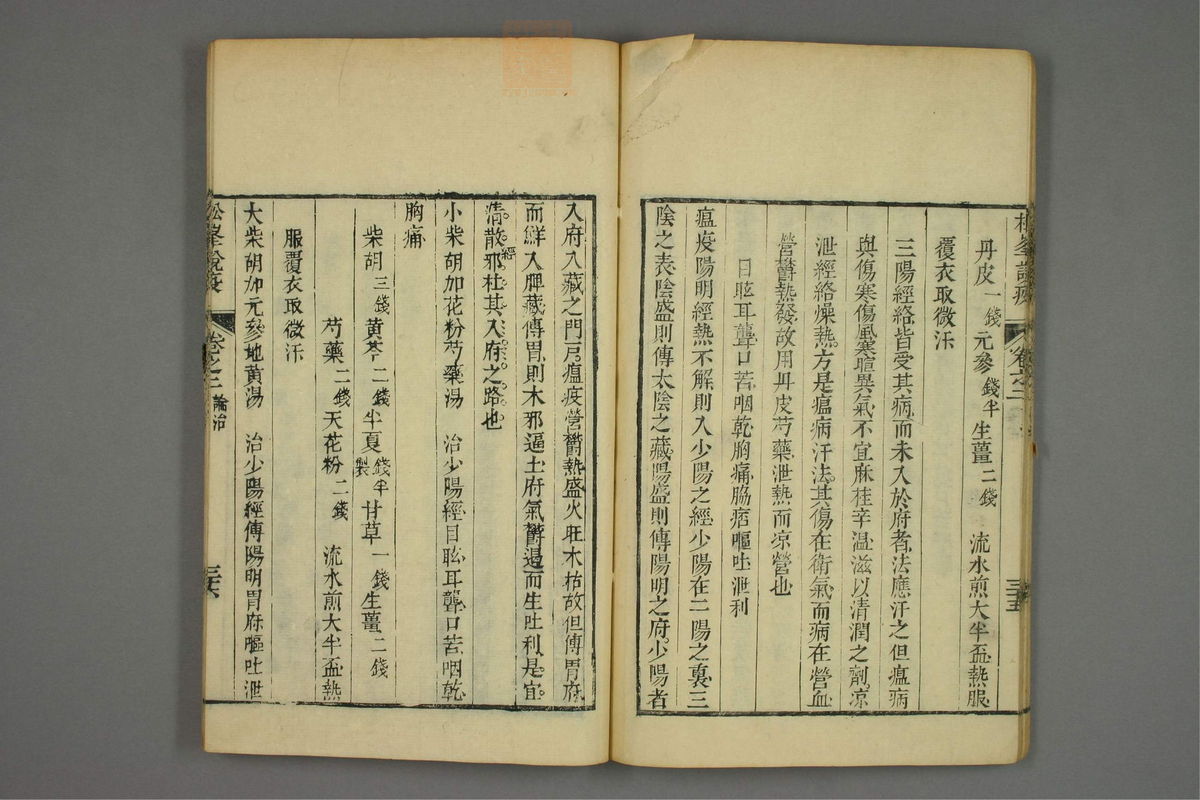 松峯說疫 卷之二 三十五
丹皮一錢元參錢半生薑二錢 流水煎大半盃熱服
覆衣取微汗
三陽經絡皆受其病而未入於府者法應汗之但瘟病
與傷寒傷風寒暄異氣不宜麻桂辛温滋以清潤之劑凉
泄經絡燥熱方是瘟病汗法其傷在衛氣而病在營血
營鬱熱發故用丹皮芍藥泄熱而凉營也
目眩耳聾口苦咽乾胸痛脇痞嘔吐泄利
瘟疫陽明經熱不解則入少陽之經少陽在二陽之裏三
陰之表陰盛則傳太陰之藏陽盛則傳陽明之府少陽者
入府入藏之門戶瘟疫營鬱熱盛火旺木枯故但傳胃府
而鮮入脾藏傳胃則木邪逼土府氣鬱遏而生吐利是宜
清散經邪杜其入府之路也
小柴胡加花粉芍藥湯 治少陽經目眩耳聾口苦咽乾
胸痛
柴胡三錢黃芩二錢半夏錢半製甘草一錢生薑二錢
芍藥二錢天花粉二錢 流水煎大半盃熱
服覆衣取微汗
大柴胡加元參地黃湯 治少陽經傳陽明胃府嘔吐泄
松峯說疫 卷之二 論治 三十六